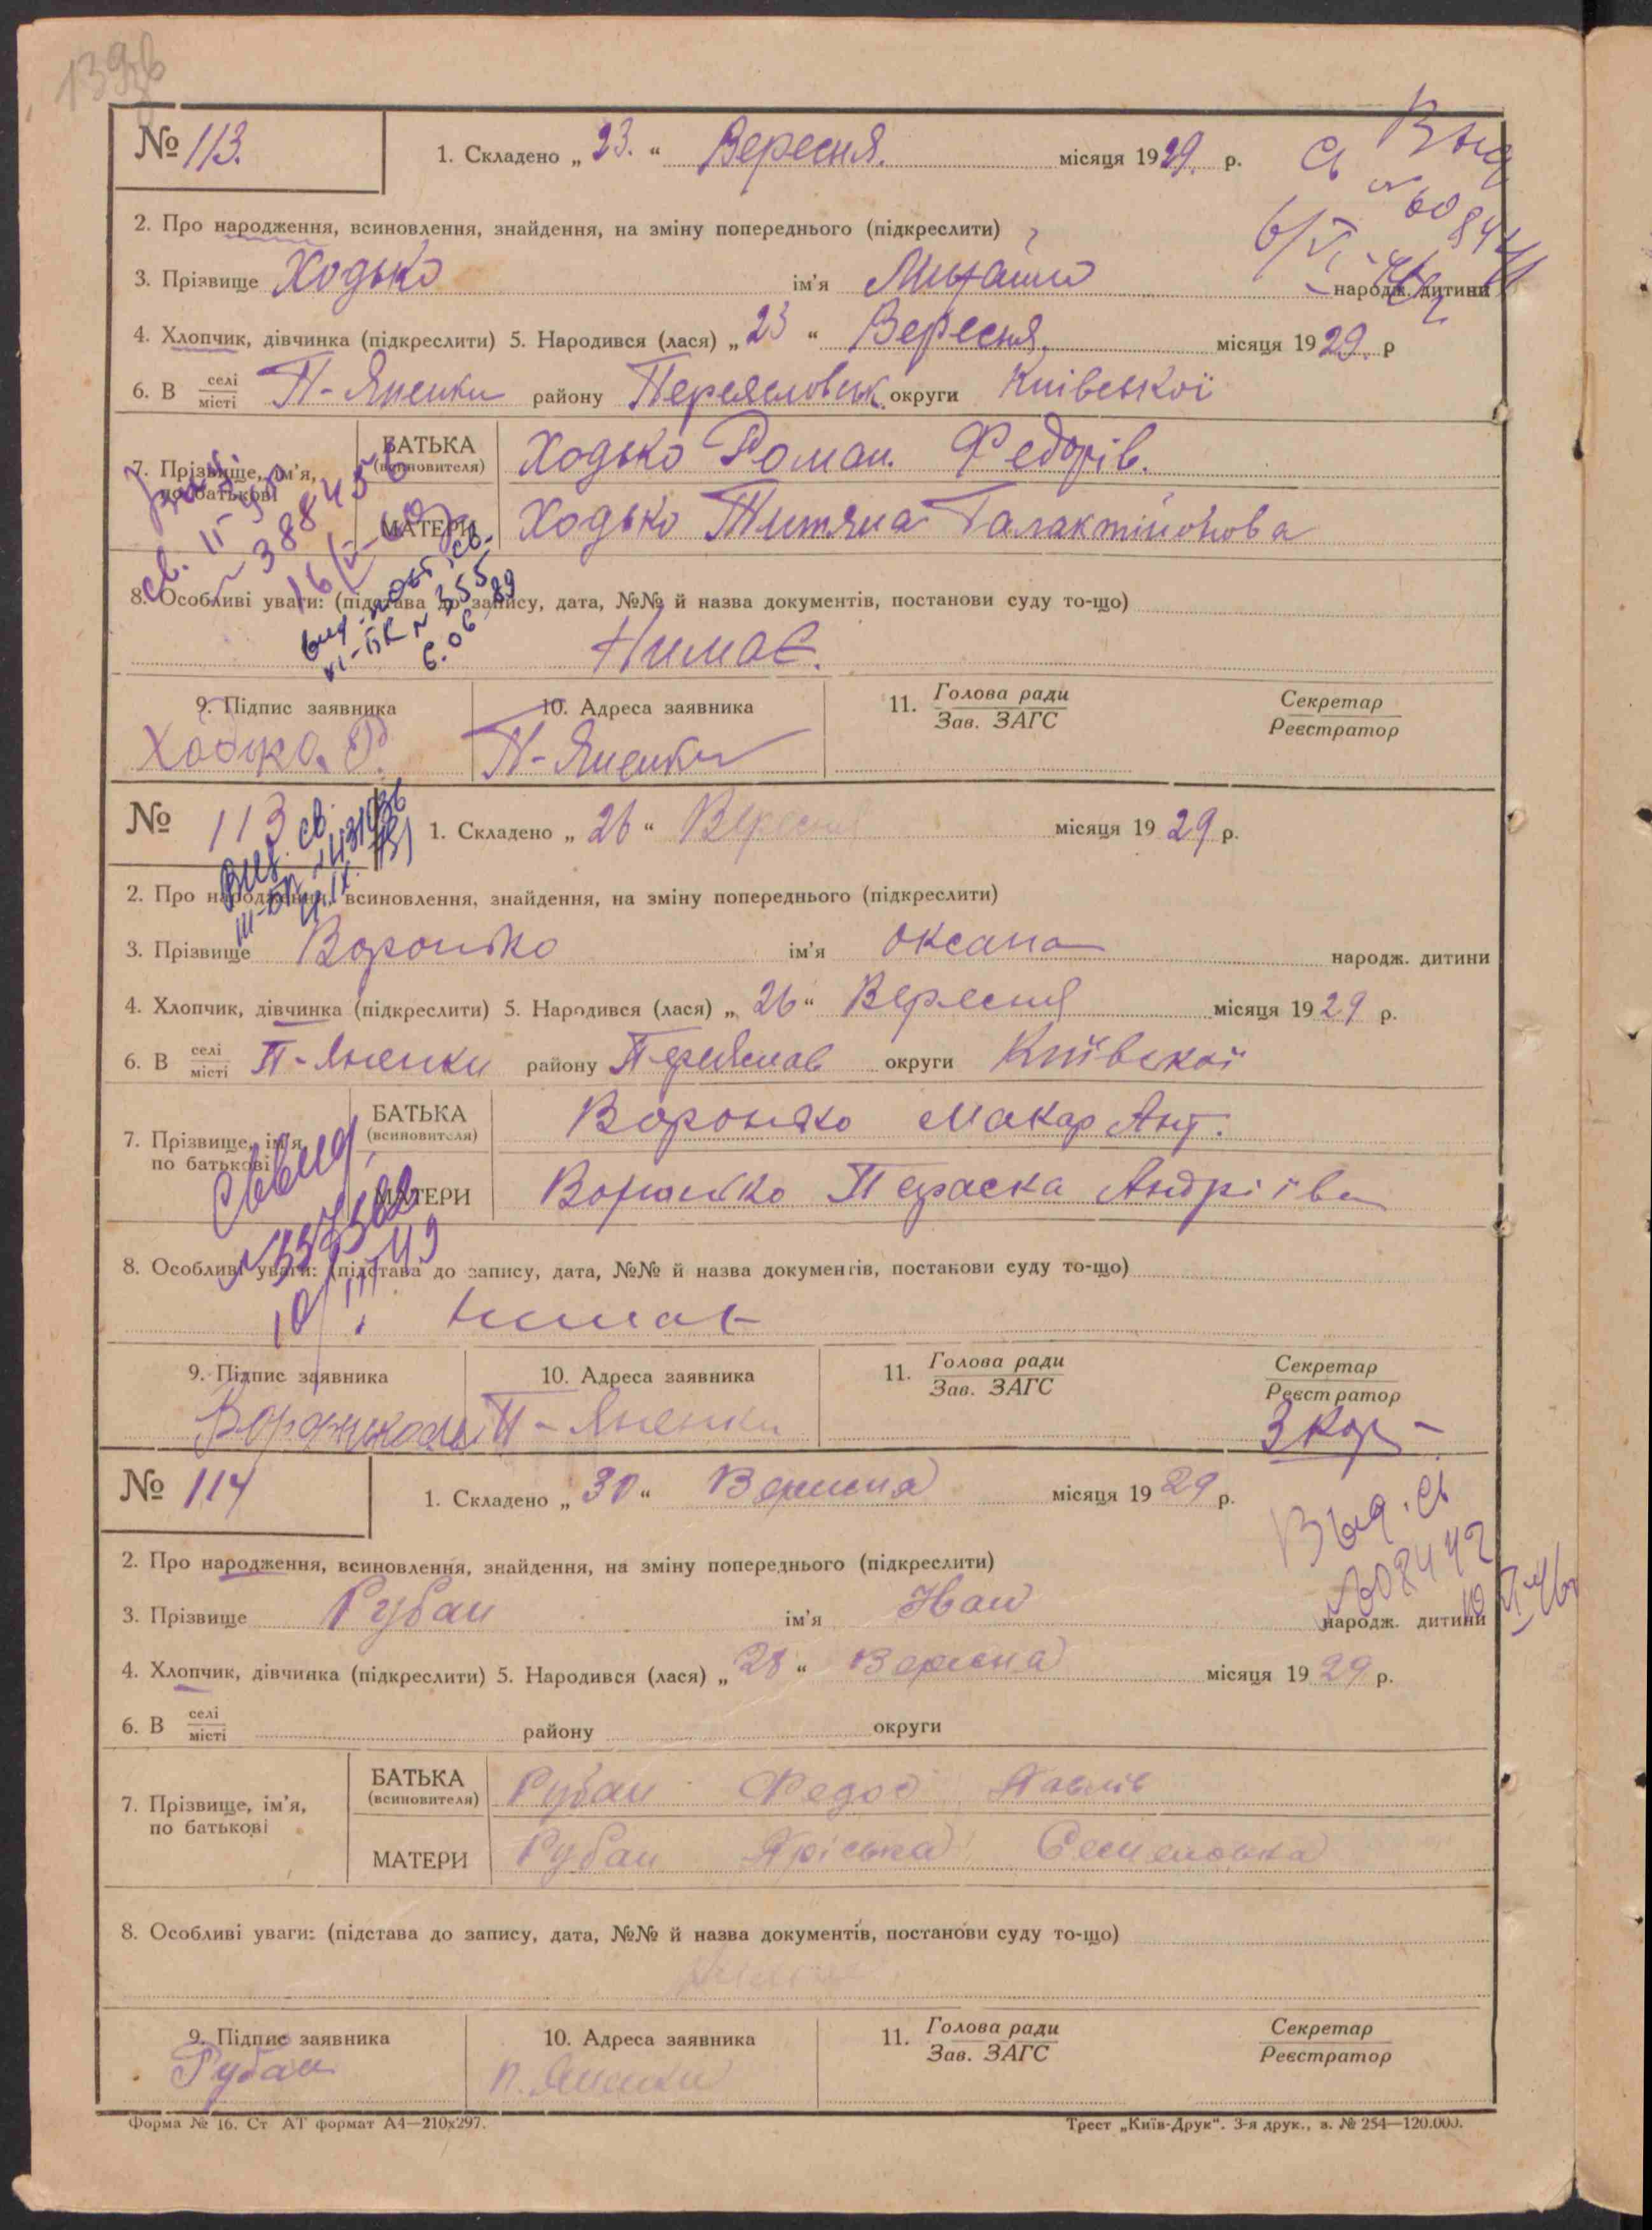 139
№ 113. 1. Складено „ 23. “ Вересня. місяця 1929. р.
2. Про народження, всиновлення, знайдення, на зміну попереднього (підкреслити)
3. Прізвище Ходько ім'я Михайло народж. дитини
4. Хлопчик, дівчинка (підкреслити) 5. Народився (лася) „ 23 “ Вересня. місяця 1929. р
6. В селі місті П-Яненки району Переяславськ. округи Київської
7. Прізвище, ім'я, по батькові БАТЬКА (всиновителя) Ходько Роман Федорів.
МАТЕРИ Ходько Титяна Галактіїонова
8. Особливі уваги: (підстава до запису, дата, №№ й назва документів, постанови суду то-що)
Нимає.
9. Підпис заявника 10. Адреса заявника 11. Голова ради Зав. ЗАГС Секретар Реєстратор
Ходько Р. П-Яненки
№ 113 1. Складено „ 26 “ Вересня місяця 1929 р.
2. Про народження, всиновлення, знайдення, на зміну попереднього (підкреслити)
3. Прізвище Воронько ім'я Оксана народж. дитини
4. Хлопчик, дівчинка (підкреслити) 5. Народився (лася) „ 26 “ Вересня місяця 1929 р.
6. В селі місті П-Яненки району Переяслав округи Київської
7. Прізвище, ім'я, по батькові БАТЬКА (всиновителя) Воронько Макар Ант.
МАТЕРИ Воронько Параска Андріівн
8. Особливі уваги: (підстава до запису, дата, №№ й назва документів, постанови суду то-що)
нимає
9. Підпис заявника 10. Адреса заявника 11. Голова ради Зав. ЗАГС Секретар Реєстратор
П-Яненки
№ 114 1. Складено „ 30 “ Вересня місяця 1929 р.
Выд. св
2. Про народження, всиновлення, знайдення, на зміну попереднього (підкреслити)
3. Прізвище Рубан ім'я Іван народж. дитини
4. Хлопчик, дівчинка (підкреслити) 5. Народився (лася) „ 28 “ Вересня місяця 1929 р.
6. В селі місті району округи
7. Прізвище, ім'я, по батькові БАТЬКА (всиновителя) Рубан Федос Павлів
МАТЕРИ Рубан Пріська Семеновна
8. Особливі уваги: (підстава до запису, дата, №№ й назва документів, постанови суду то-що)
9. Підпис заявника 10. Адреса заявника 11. Голова ради Зав. ЗАГС Секретар Реєстратор
Рубан П. Яненки
Форма № 16. Ст АТ формат А4—210х297. Трест „Київ-Друк“. 3-я друк., з. № 254—120.000.